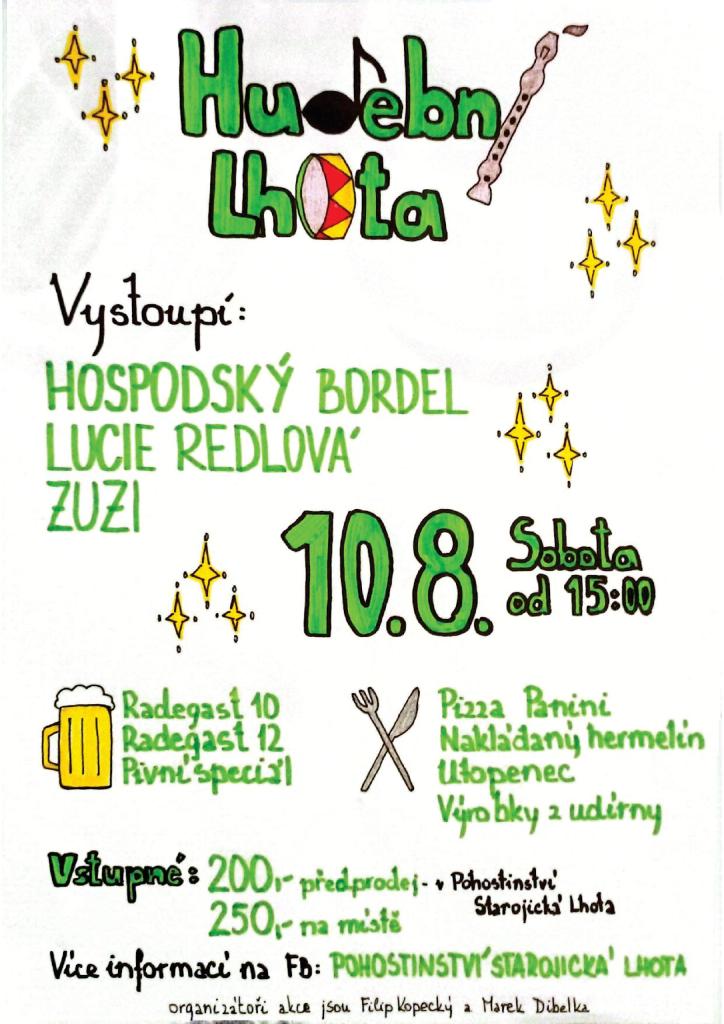 Hudební
Lhota
Vystoupí:
HOSPODSKÝ BORDEL
LUCIE REDLOVÁ
ZUZI
10.8.
Sobota
od 15:00
Radegast 10
Radegast 12
Pivní speciál
Pizza Panini
Nakládaný hermelín
Utopenec
Výrobky z udírny
Vstupné: 200,- předprodej - v Pohostinství
Starojická Lhota
250,- na místě
Více informací na FB: POHOSTINSTVÍ STAROJICKÁ LHOTA
organizátoři akce jsou Filip Kopecký a Marek Dibelka